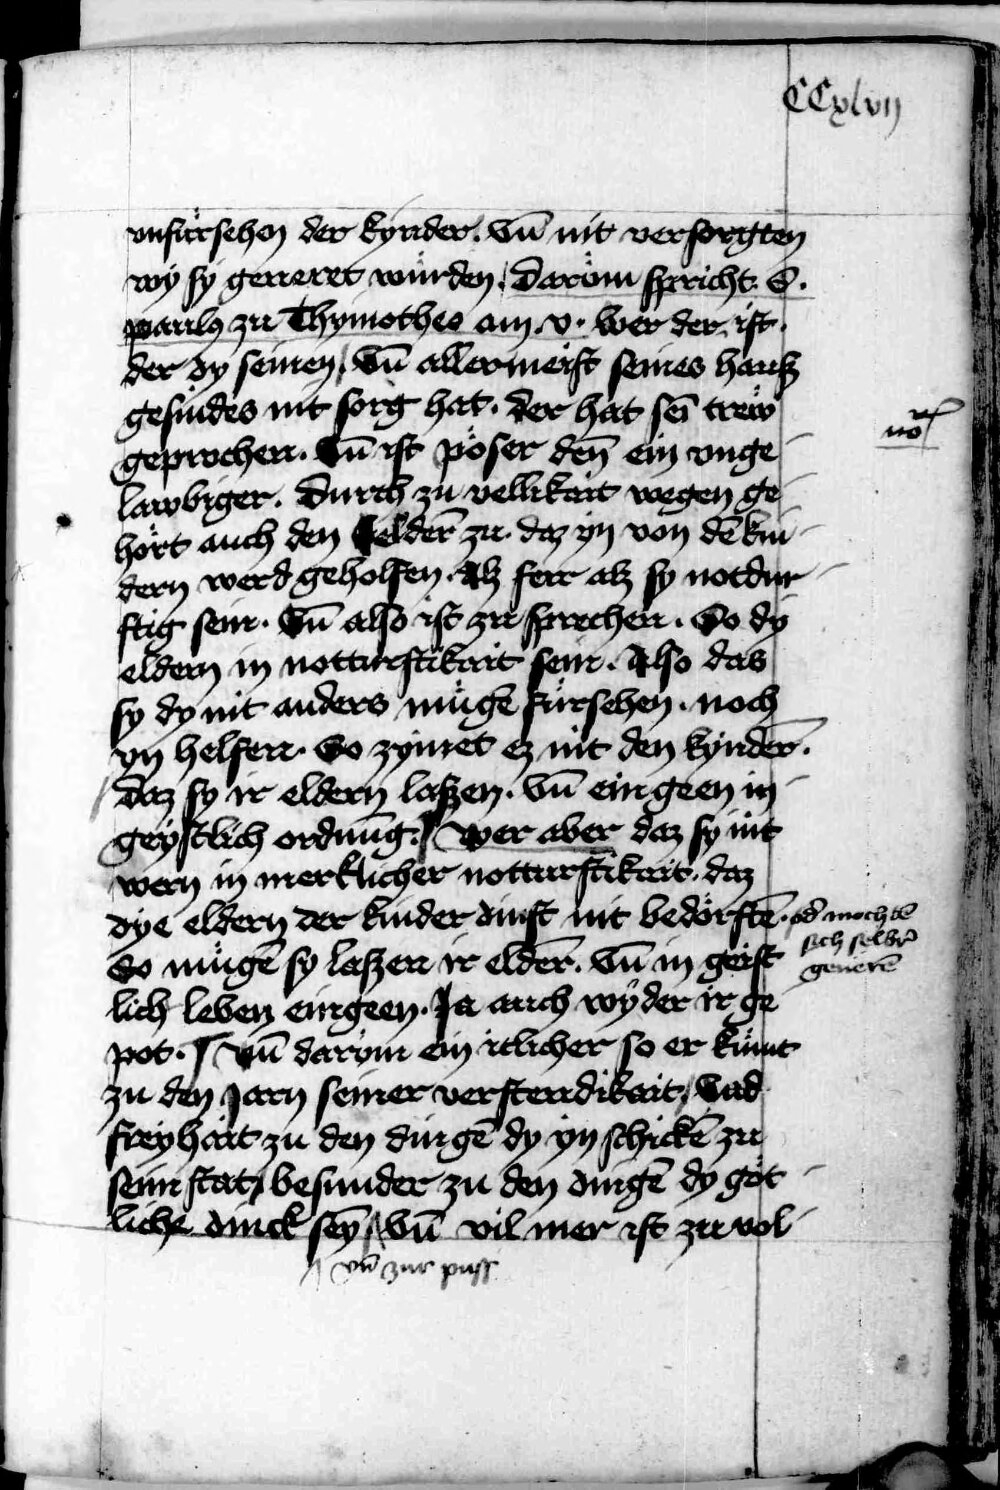 CCxlvij
vnfürsehen der kynder. Vn̄ nit versorgten
wy sy generet würden. Daröm spricht. S.
paulꝰ zu Thymotheo am. v. wer der ist.
der dy seinen, Vn̄ allermeist seines hausz
gesindes nit sorg hat. der hat sei̅ trew
geprochen. Vn̄ ist pöser den̅ ein vnge
lawbiger. Durch zu vellikait wegen ge
hört auch den elder̅ zu. daz yn von de̅ kin
dern werd geholfen. Alz ferr alz sy notdur
ftig sein. Vn̄ also ist zu sprechen. So dy
eldern in notturftikait sein. Also das
sy dy nit anders müge̅ fürsehen. noch
yn helfen. So zymet ez nit den kynder̅.
daz sy ir eldern laszen. Vn̄ ein geen in
geystlich ordnu̅g. Wer aber daz sy nit
wern in merklicher notturftikait. daz
dye eldern der kinder dinst nit bedörfte̅. od̓ mochte̅
sich selbr̅
genere̅
So müge̅ sy laszen ir elder̅. Vn̄ in geist
lich leben eingeen. Ja auch wyder ir ge
pot. Vn̄ daröm ein itlicher so er kümt
zu den Jarn seiner verstendikait, Vnd
freyhait zu den dinge̅ dy yn schicke̅ zu
seim stat, besunder zu den dinge̅ dy göt
liche dinck sey̅, Vn̄ vil mer ist zu vol
vn̄ zur puss
no̅